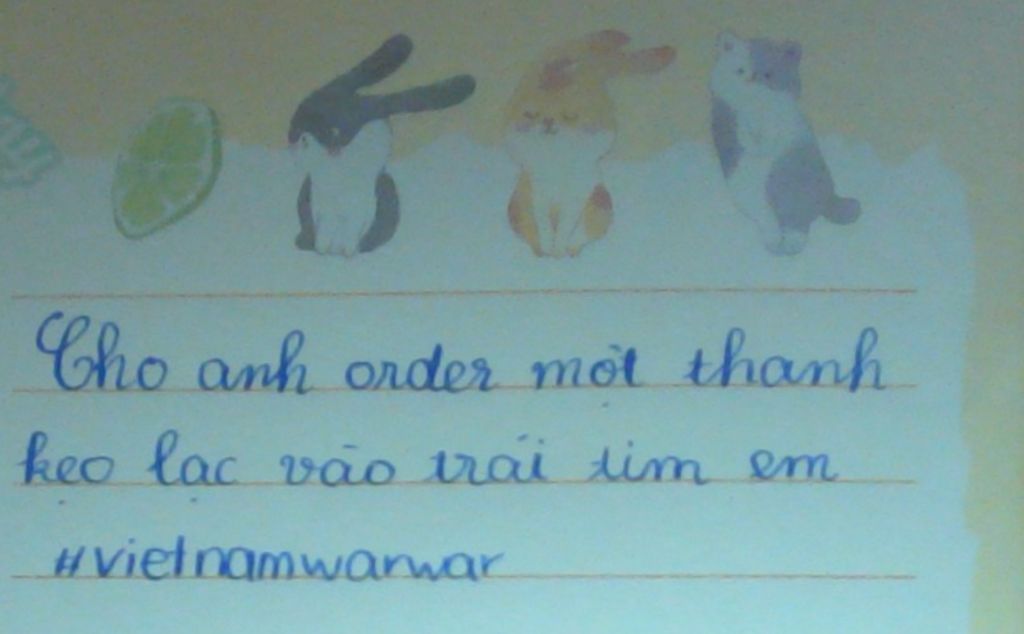 Cho anh order một thanh
kẹo lạc vào trái tim em
#vietnamwarwar